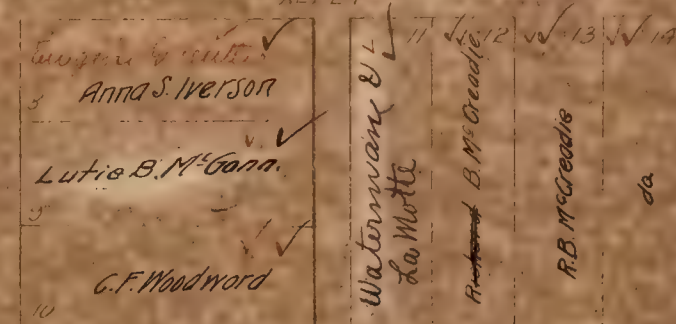 ALLEY
Anna S. Iverson
Lutie B. McGann.
9
C.F. Woodword
10
11
La Motte
12
B. McCreadie
13
R.B. McCreadie
14
do